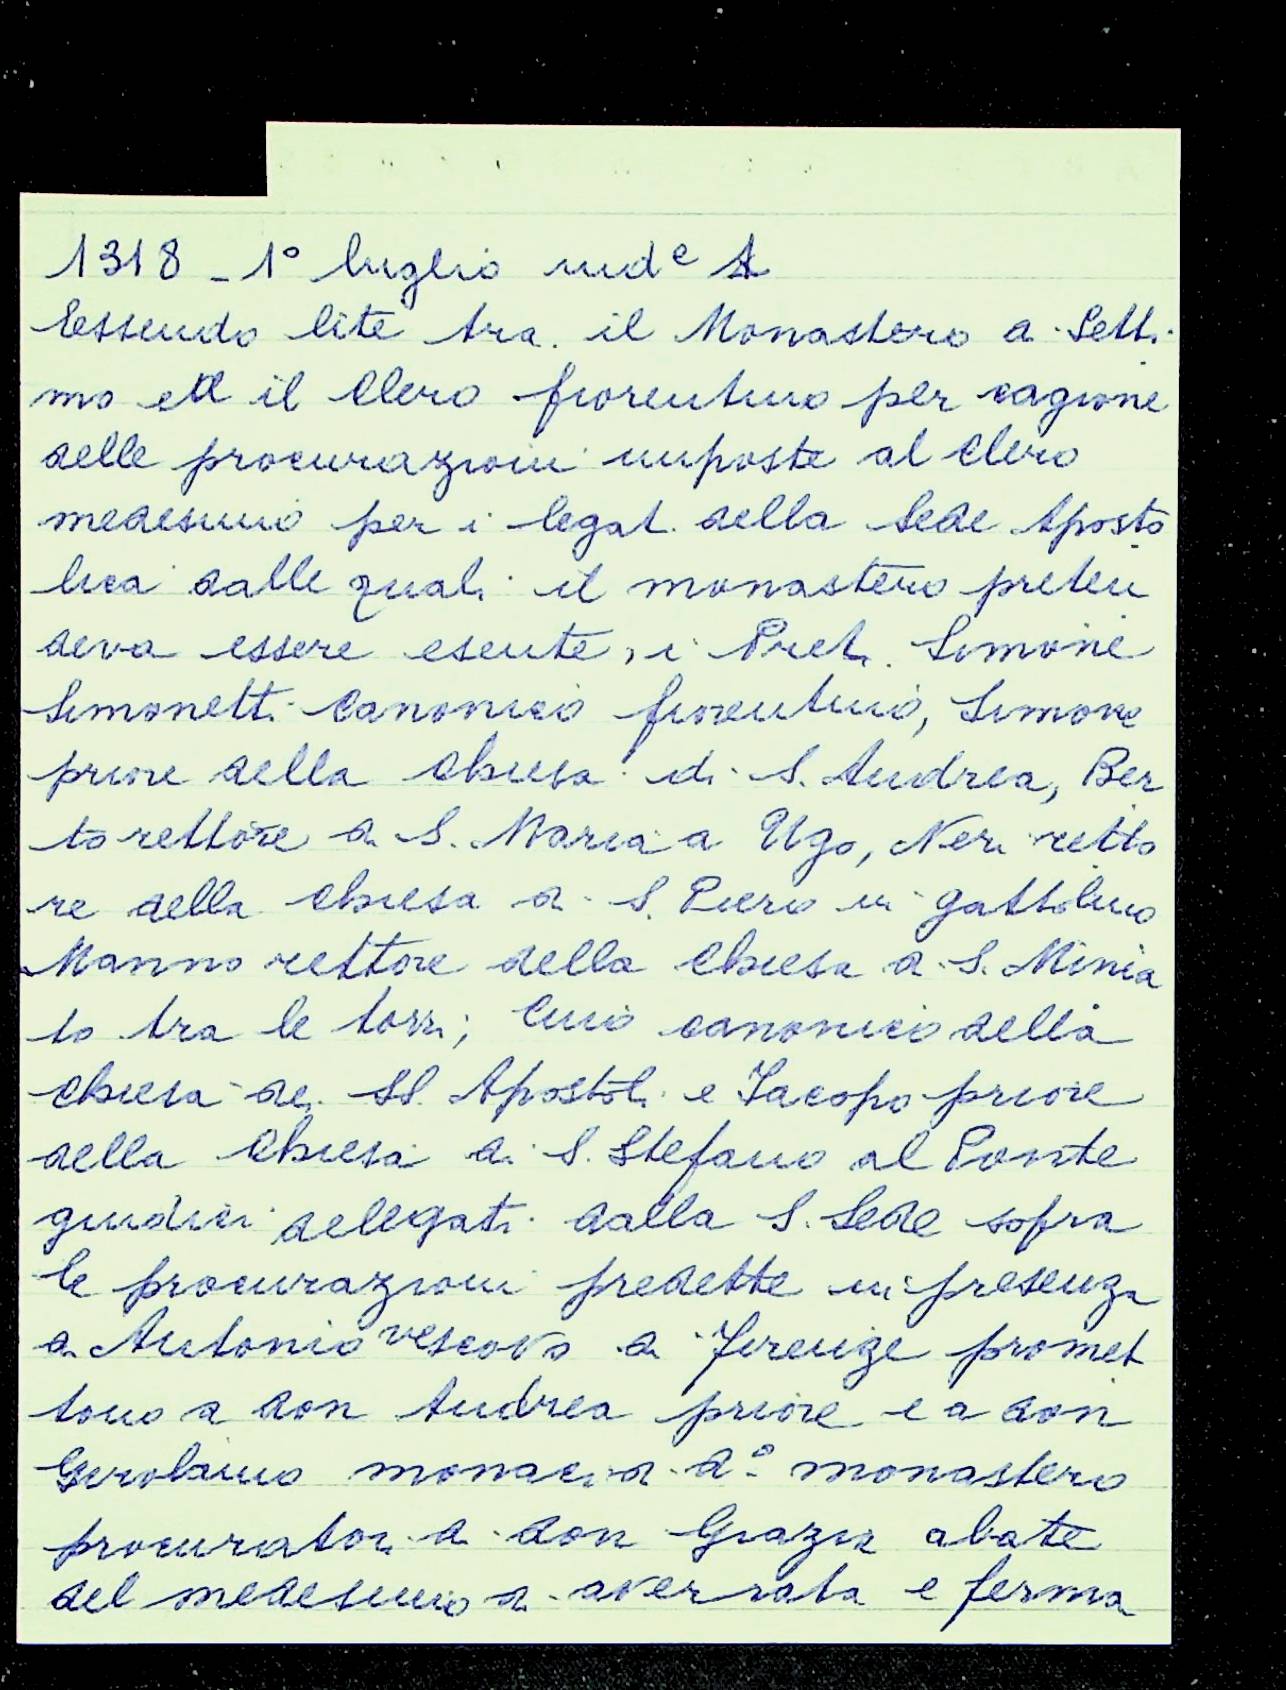 1318 - 1° luglio inde
Essendo lite tra il Monastero di Setti
mo ed il Clero fiorentino per cagione
delle procurazioni imposte al Clero
medesimo per i legati della Sede Aposto
lica dalle quali il monastero preten
deva essere esente, i Preti Simone
Simonetti Canonico fiorentino, Simone
priore della Chiesa di S. Andrea, Ber
to rettore di S. Maria a Ugo, Neri retto
re della Chiesa di S. Piero in gattolino
Manno rettore della Chiesa di S. Minia
to tra le torri; Cino canonico della
Chiesa dei SS. Apostoli e Iacopo priore
della Chiesa di S. Stefano al Ponte
giudici delegati dalla S. Sede sopra
le procurazioni predette in presenza
di Antonio vescovo di Firenze promet
tono a don Andrea priore e a don
Girolamo monaci di d° monastero
procuratori di don Grazia abate
del medesimo di aver rata e ferma